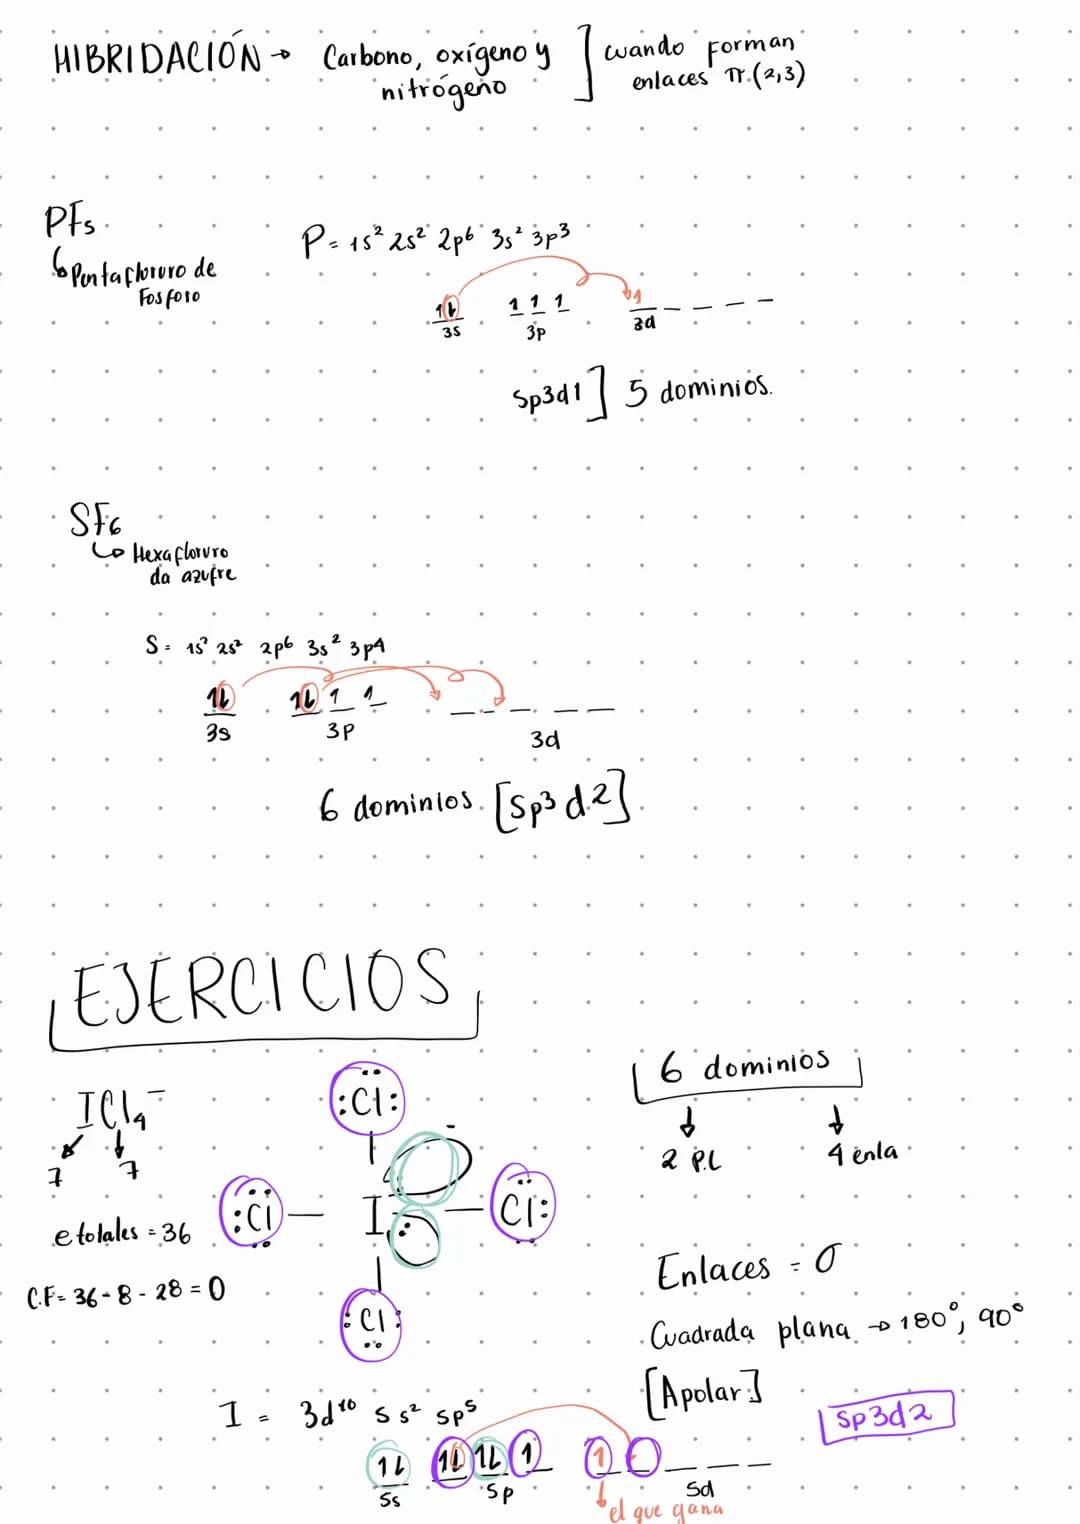 HIBRIDACIÓN → Carbono, oxígeno y nitrógeno ] cuando forman enlaces π.(2,3)
PF5
↳ Pentafloruro de Fosforo
P = 1s² 2s² 2p⁶ 3s² 3p³
1⇂ 1 1 1 1
3s 3p 3d
sp3d1 ] 5 dominios.
SF6
↳ Hexafloruro
da azufre
S = 1s² 2s² 2p⁶ 3s² 3p4
1⇂ 1⇂ 1 1
3s 3p 3d
6 dominios [sp³ d2]
EJERCICIOS
ICl₄⁻
7 7
e totales = 36
C.F = 36 - 8 - 28 = 0
:Cl:
:Cl — I — Cl:
:Cl:
6 dominios
↓ ↓
2 P.L 4 enla
Enlaces = σ
Cuadrada plana → 180°, 90°
[Apolar]
sp3d2
I = 3d¹⁰ 5s² 5p⁵
1⇂ 1⇂ 1⇂ 1 1
5s 5p 5d
↓ el que gana